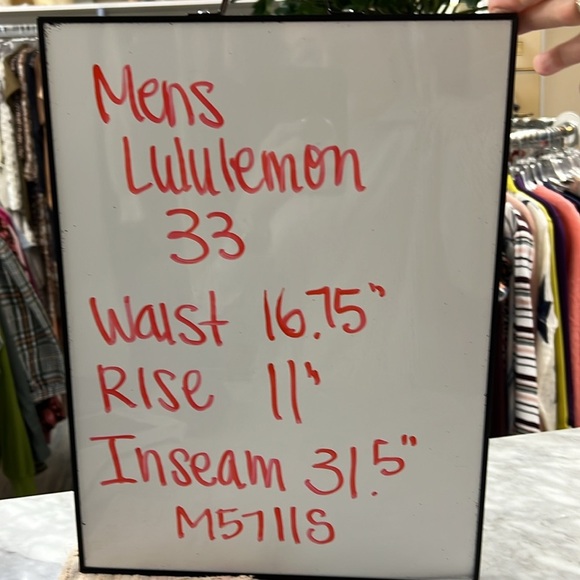 Mens
Lululemon
33
Waist 16.75"
Rise 11"
Inseam 31.5"
M5711S